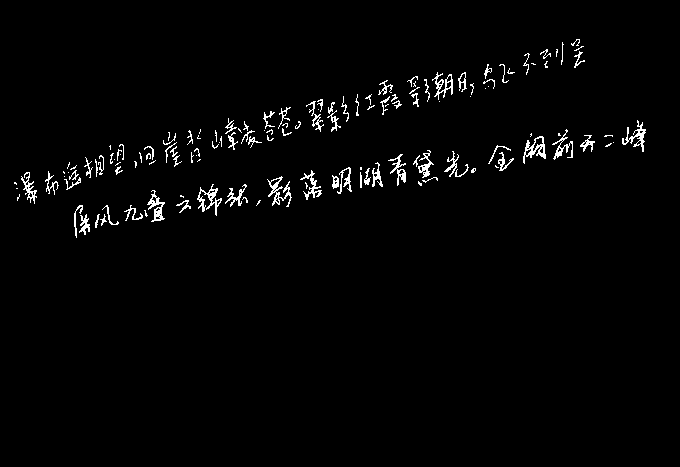 瀑布遥相望,回崖沓嶂凌苍苍。翠影红霞影朝日,鸟飞不到吴
屏风九叠云锦张,影落明湖青黛光。金阙前开二峰